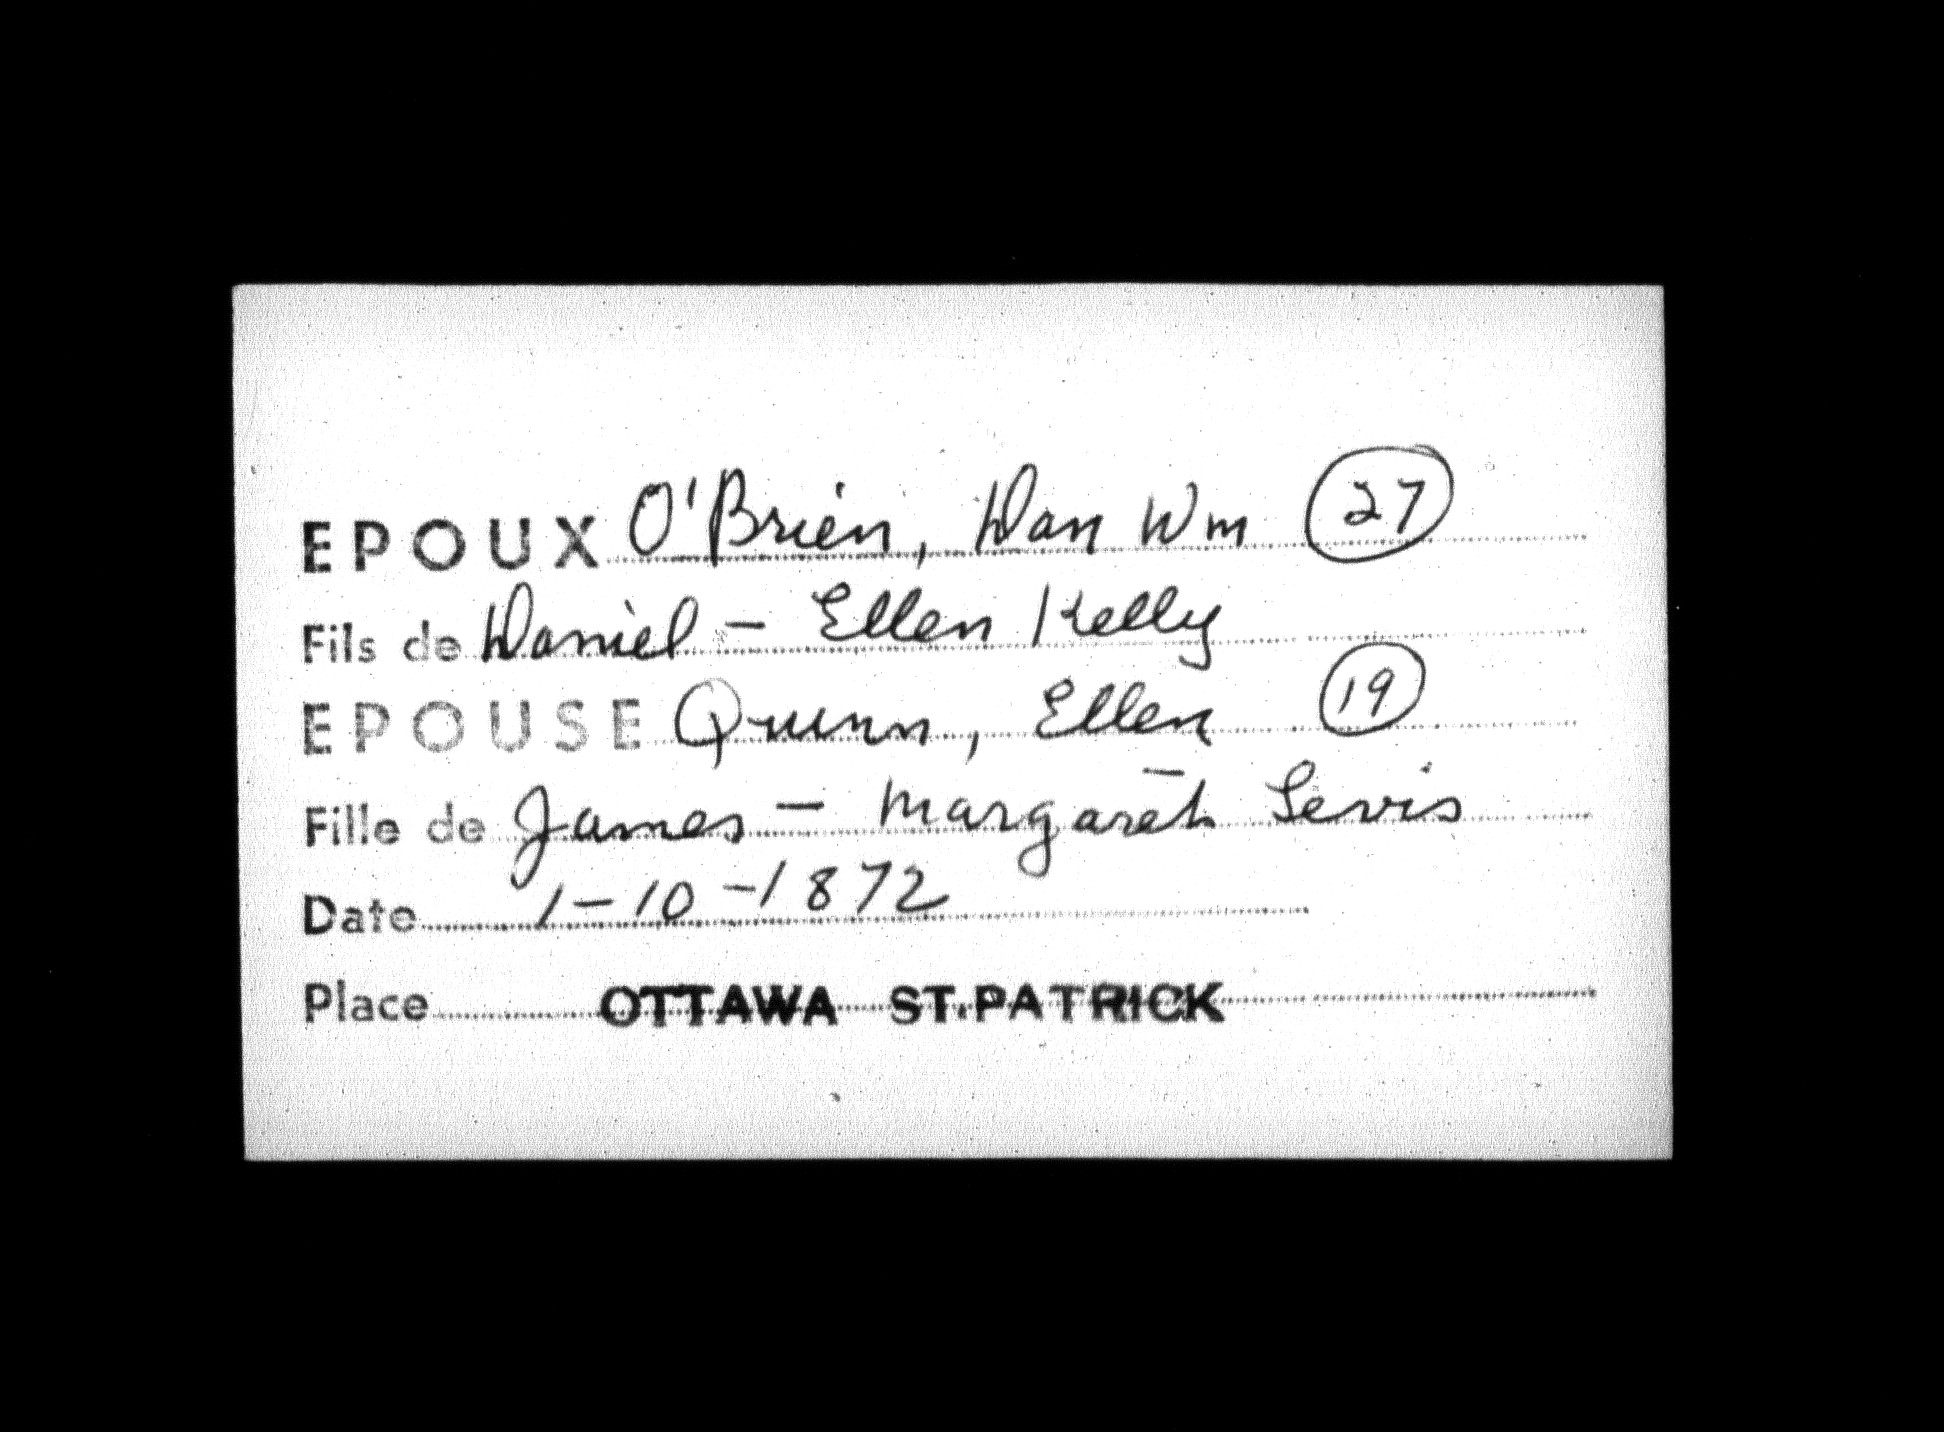 EPOUX O'Brien, Dan Wm 27
Fils de Daniel - Ellen Kelly
EPOUSE Quinn, Ellen 19
Fille de James - Margaret Levis
Date 1-10-1872
Place OTTAWA ST.PATRICK